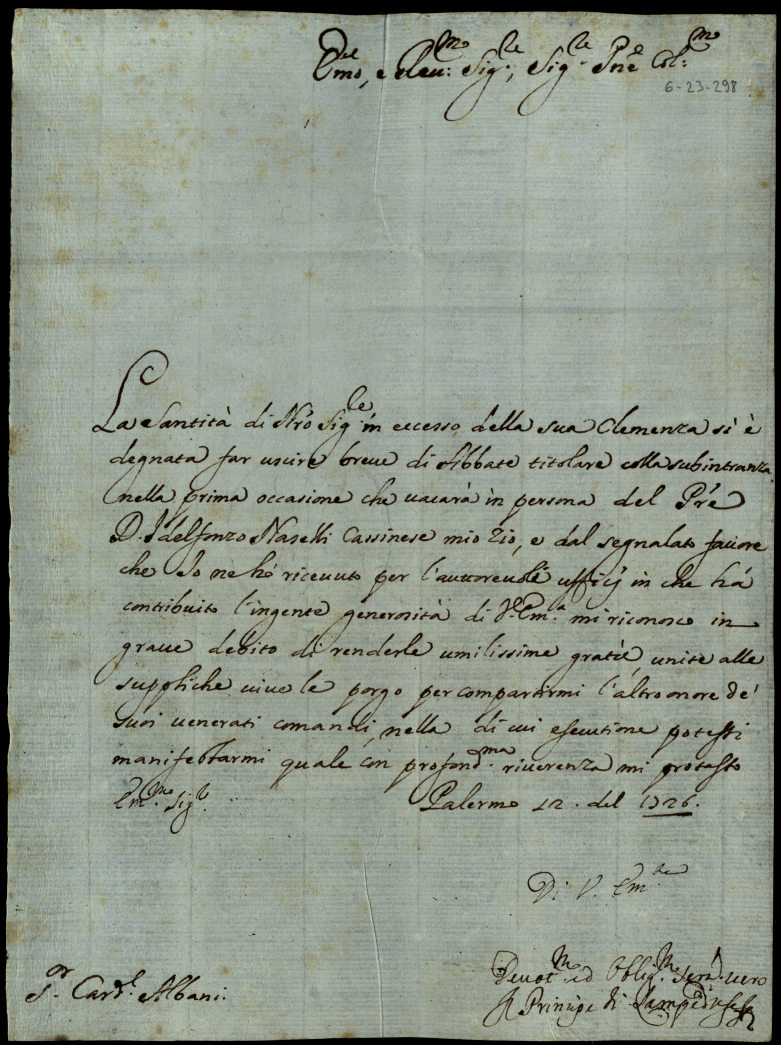 Emo, e Reu: Sig.re, Sig.re Pne Col:mo
6-23-298
La Santità di Nro Sig.re in eccesso della sua Clemenza si è
degnata far uscire breue di Abbate titolare colla subintranza
nella prima occasione che uacarà in persona del Pre
D. Idelfonzo Naselli Cassinese mio Zio, e dal segnalato fauore
che Io ne hò riceuuto per l'auttoreuoli ufficij in che hà
contribuito l'ingente generosità di V. Em.a mi riconosco in
graue debito di renderle umilissime gratie, unite alle
suppliche uiue le porgo per compartirmi l'altro onore de'
suoi uenerati comandi, nella di cui esecutione potessi
manifestarmi quale con profond.ma riuerenza mi protesto
Em.mo Sig.re Palermo 12. del 1726.
Di V. Em.za
Deuot.mo ed Oblig.mo Ser.d. uero
Il Principe di Lampedusa
S.or Card.l Albani.